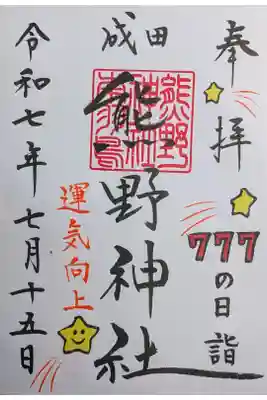 奉拝
777の日詣
成田
熊野神社
運気向上
令和七年七月十五日